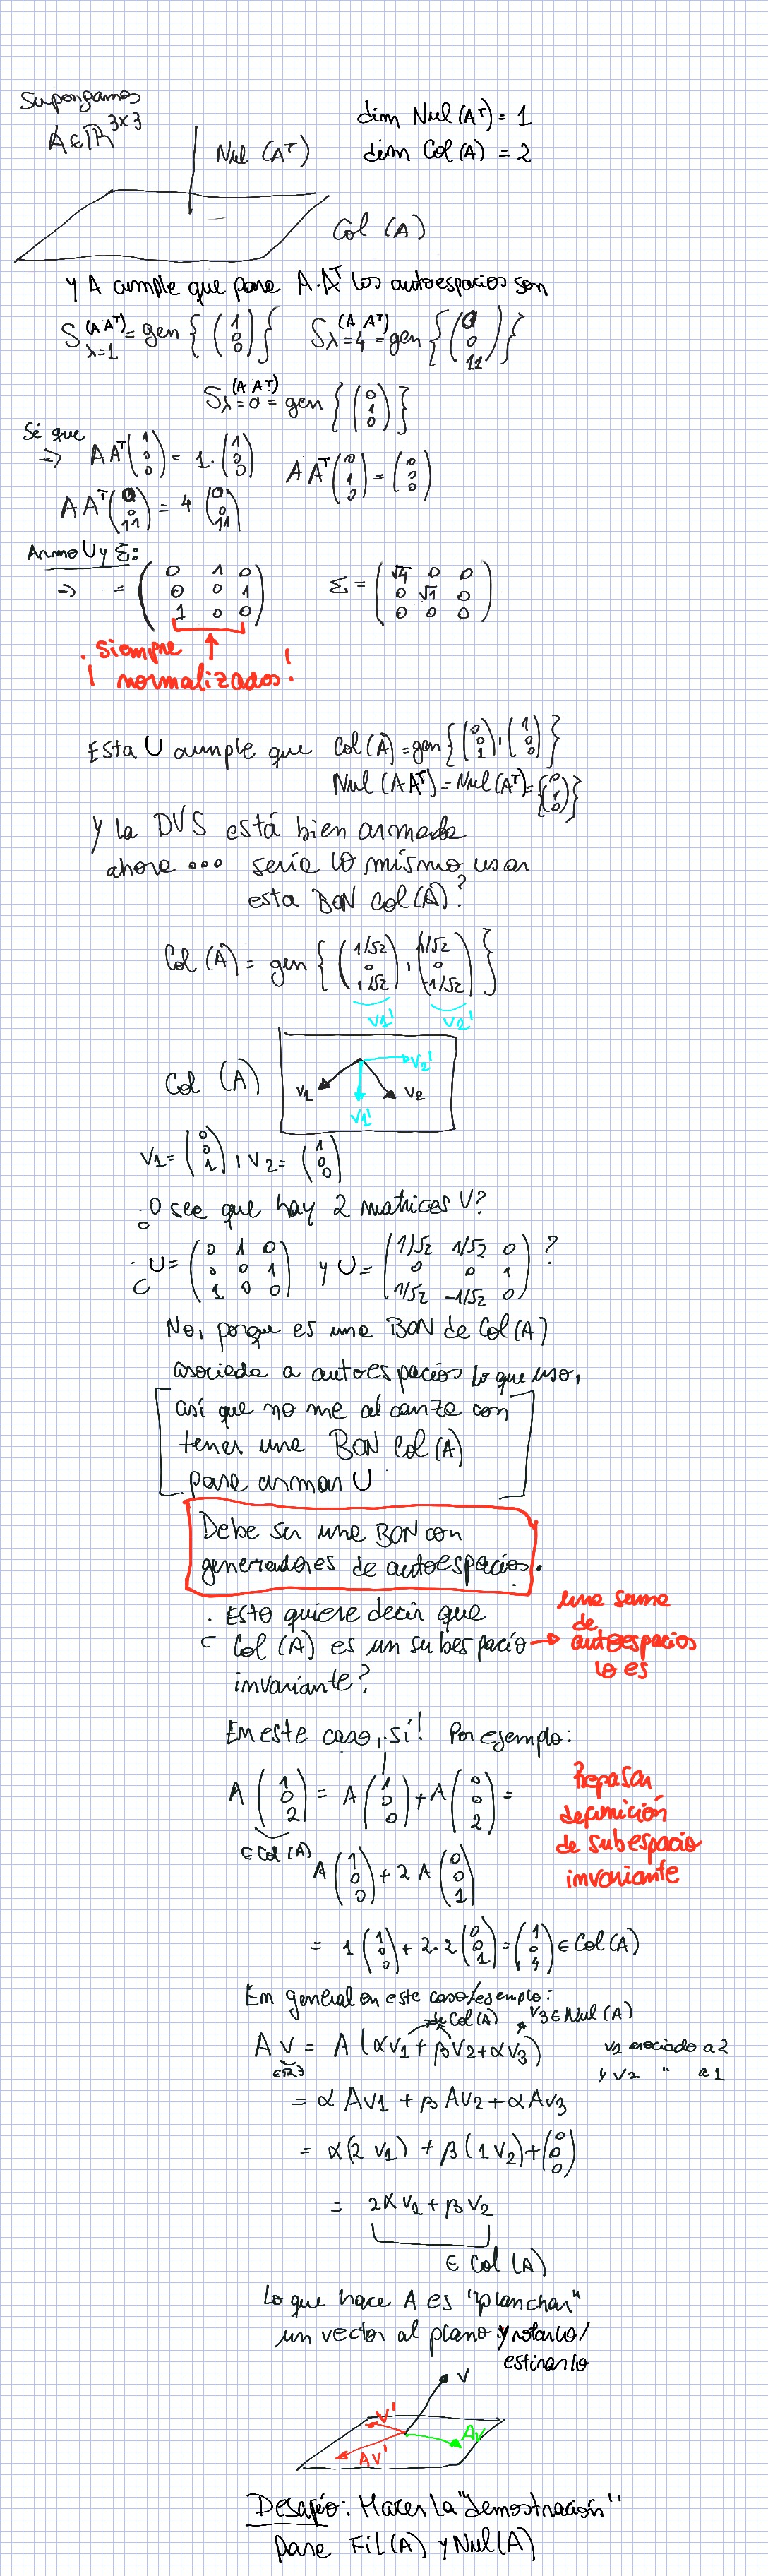 Supongamos
A∈ℝ^3×3
Nul (Aᵀ)
dim Nul(Aᵀ) = 1
dim Col(A) = 2
Col (A)
y A cumple que para A.Aᵀ los autoespacios son
S_λ=1^(AAᵀ) = gen { (1 0 0) } S_λ=4^(A Aᵀ) = gen { (0 0 11) }
S_λ=0^(A Aᵀ) = gen { (0 1 0) }
Sé que
=> AAᵀ (1 0 0) = 1. (1 0 0) AAᵀ (0 1 0) = (0 0 0)
AAᵀ (0 0 11) = 4 (0 0 11)
Armo U y Σ:
=> = (0 1 0 / 0 0 1 / 1 0 0) Σ = (√4 0 0 / 0 √1 0 / 0 0 0)
¡ siempre
normalizados!
Esta U cumple que Col(A) = gen { (0 0 1), (1 0 0) }
Nul (AAᵀ) = Nul(Aᵀ) = {(0 1 0)}
Y la DVS está bien armada
ahora ... sería lo mismo usar
esta BON Col(A)?
Col (A) = gen { (1/√2 0 1/√2), (1/√2 0 -1/√2) }
v1' v2'
Col (A)
v1 v2' v2 v1'
v1 = (0 0 1), v2 = (1 0 0)
¿O sea que hay 2 matrices U?
¿U = (0 1 0 / 0 0 1 / 1 0 0) y U = (1/√2 1/√2 0 / 0 0 1 / 1/√2 -1/√2 0) ?
No, porque es una BON de Col(A)
asociada a autoespacios lo que uso,
así que no me alcanza con
tener una BON Col(A)
para armar U
Debe ser una BON con
generadores de autoespacios.
¿Esto quiere decir que
Col (A) es un subespacio
invariante?
una suma
de
autoespacios
lo es
En este caso, sí! Por ejemplo:
A (1 0 2) = A (1 0 0) + A (0 0 2) =
∈ Col (A)
A (1 0 0) + 2 A (0 0 1)
Repasar
definición
de subespacio
invariante
= 1 (1 0 0) + 2.2 (0 0 1) = (1 0 4) ∈ Col (A)
En general en este caso/ejemplo:
de Col(A) v3 ∈ Nul (A)
A v = A (αv1 + βv2 + αv3)
∈ℝ3
v1 asociado a 2
y v2 " a 1
= α Av1 + β Av2 + α Av3
= α(2 v1) + β (1 v2) + (0 0 0)
= 2α v1 + β v2
∈ Col (A)
Lo que hace A es "planchar"
un vector al plano y rotarlo/
estirarlo
v
v'
Av
Av'
Desafío: Hacer la "demostración"
para Fil(A) y Nul(A)